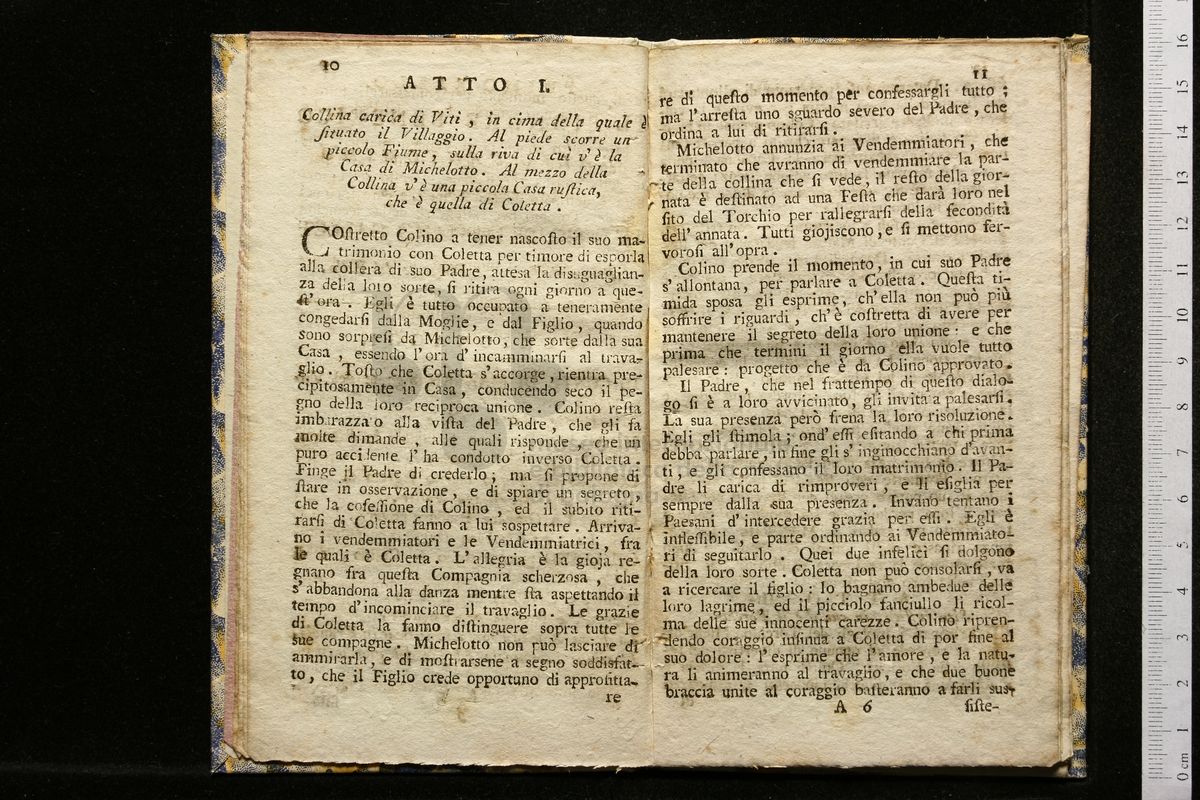 10
ATTO I.
Collina carica di Viti, in cima della quale è
ſituato il Villaggio. Al piede scorre un
piccolo Fiume, sulla riva di cui v'è la
Casa di Michelotto. Al mezzo della
Collina v'è una piccola Casa ruſtica,
che è quella di Coletta.
COſtretto Colino a tener naſcoſto il suo ma-
trimonio con Coletta per timore di esporla
alla collera di suo Padre, attesa la disuguaglian-
za della loro sorte, ſi ritira ogni giorno a que-
ſt'ora. Egli è tutto occupato a teneramente
congedarſi dalla Moglie, e dal Figlio, quando
sono sorpreſi da Michelotto, che sorte dalla sua
Casa, essendo l'ora d'incamminarſi al trava-
glio. Toſto che Coletta s'accorge, rientra pre-
cipitosamente in Casa, conducendo seco il pe-
gno della loro reciproca unione. Colino reſta
imbarazzato alla viſta del Padre, che gli fa
molte dimande, alle quali risponde, che un
puro accidente l'ha condotto inverso Coletta.
Finge il Padre di crederlo; ma ſi propone di
ſtare in osservazione, e di spiare un segreto,
che la cofeſſione di Colino, ed il subito riti-
rarſi di Coletta fanno a lui sospettare. Arriva-
no i vendemmiatori e le Vendemmiatrici, fra
le quali è Coletta. L'allegria è la gioja re-
gnano fra queſta Compagnia scherzosa, che
s'abbandona alla danza mentre ſta aspettando il
tempo d'incominciare il travaglio. Le grazie
di Coletta la fanno diſtinguere sopra tutte le
sue compagne. Michelotto non può lasciare di
ammirarla, e di moſtrarsene a segno soddisfat-
to, che il Figlio crede opportuno di approfitta-
re
11
re di queſto momento per confessargli tutto;
ma l'arreſta uno sguardo severo del Padre, che
ordina a lui di ritirarſi.
Michelotto annunzia ai Vendemmiatori, che
terminato che avranno di vendemmiare la par-
te della collina che ſi vede, il reſto della gior-
nata è deſtinato ad una Feſta che darà loro nel
ſito del Torchio per rallegrarſi della fecondità
dell'annata. Tutti giojiscono, e ſi mettono fer-
voroſi all'opra.
Colino prende il momento, in cui suo Padre
s'allontana, per parlare a Coletta. Queſta ti-
mida sposa gli esprime, ch'ella non può più
soffrire i riguardi, ch'è coſtretta di avere per
mantenere il segreto della loro unione: e che
prima che termini il giorno ella vuole tutto
palesare: progetto che è da Colino approvato.
Il Padre, che nel frattempo di queſto dialo-
go ſi è a loro avvicinato, gli invita a palesarſi.
La sua presenza però frena la loro risoluzione.
Egli gli ſtimola; ond'eſſi eſitando a chi prima
debba parlare, in fine gli s'inginocchiano d'avan-
ti, e gli confessano il loro matrimonio. Il Pa-
dre li carica di rimproveri, e li eſiglia per
sempre dalla sua presenza. Invano tentano i
Paesani d'intercedere grazia per eſſi. Egli è
infleſſibile, e parte ordinando ai Vendemmiato-
ri di seguitarlo. Quei due infelici ſi dolgono
della loro sorte. Coletta non può consolarſi, va
a ricercare il figlio: lo bagnano ambedue delle
loro lagrime, ed il picciolo fanciullo li ricol-
ma delle sue innocenti carezze. Colino ripren-
dendo coraggio inſinua a Coletta di por fine al
suo dolore: l'esprime che l'amore, e la natu-
ra li animeranno al travaglio, e che due buone
braccia unite al coraggio baſteranno a farli sus-
A 6
ſiſte-
0 cm
1
2
3
4
5
6
7
8
9
10
11
12
13
14
15
16